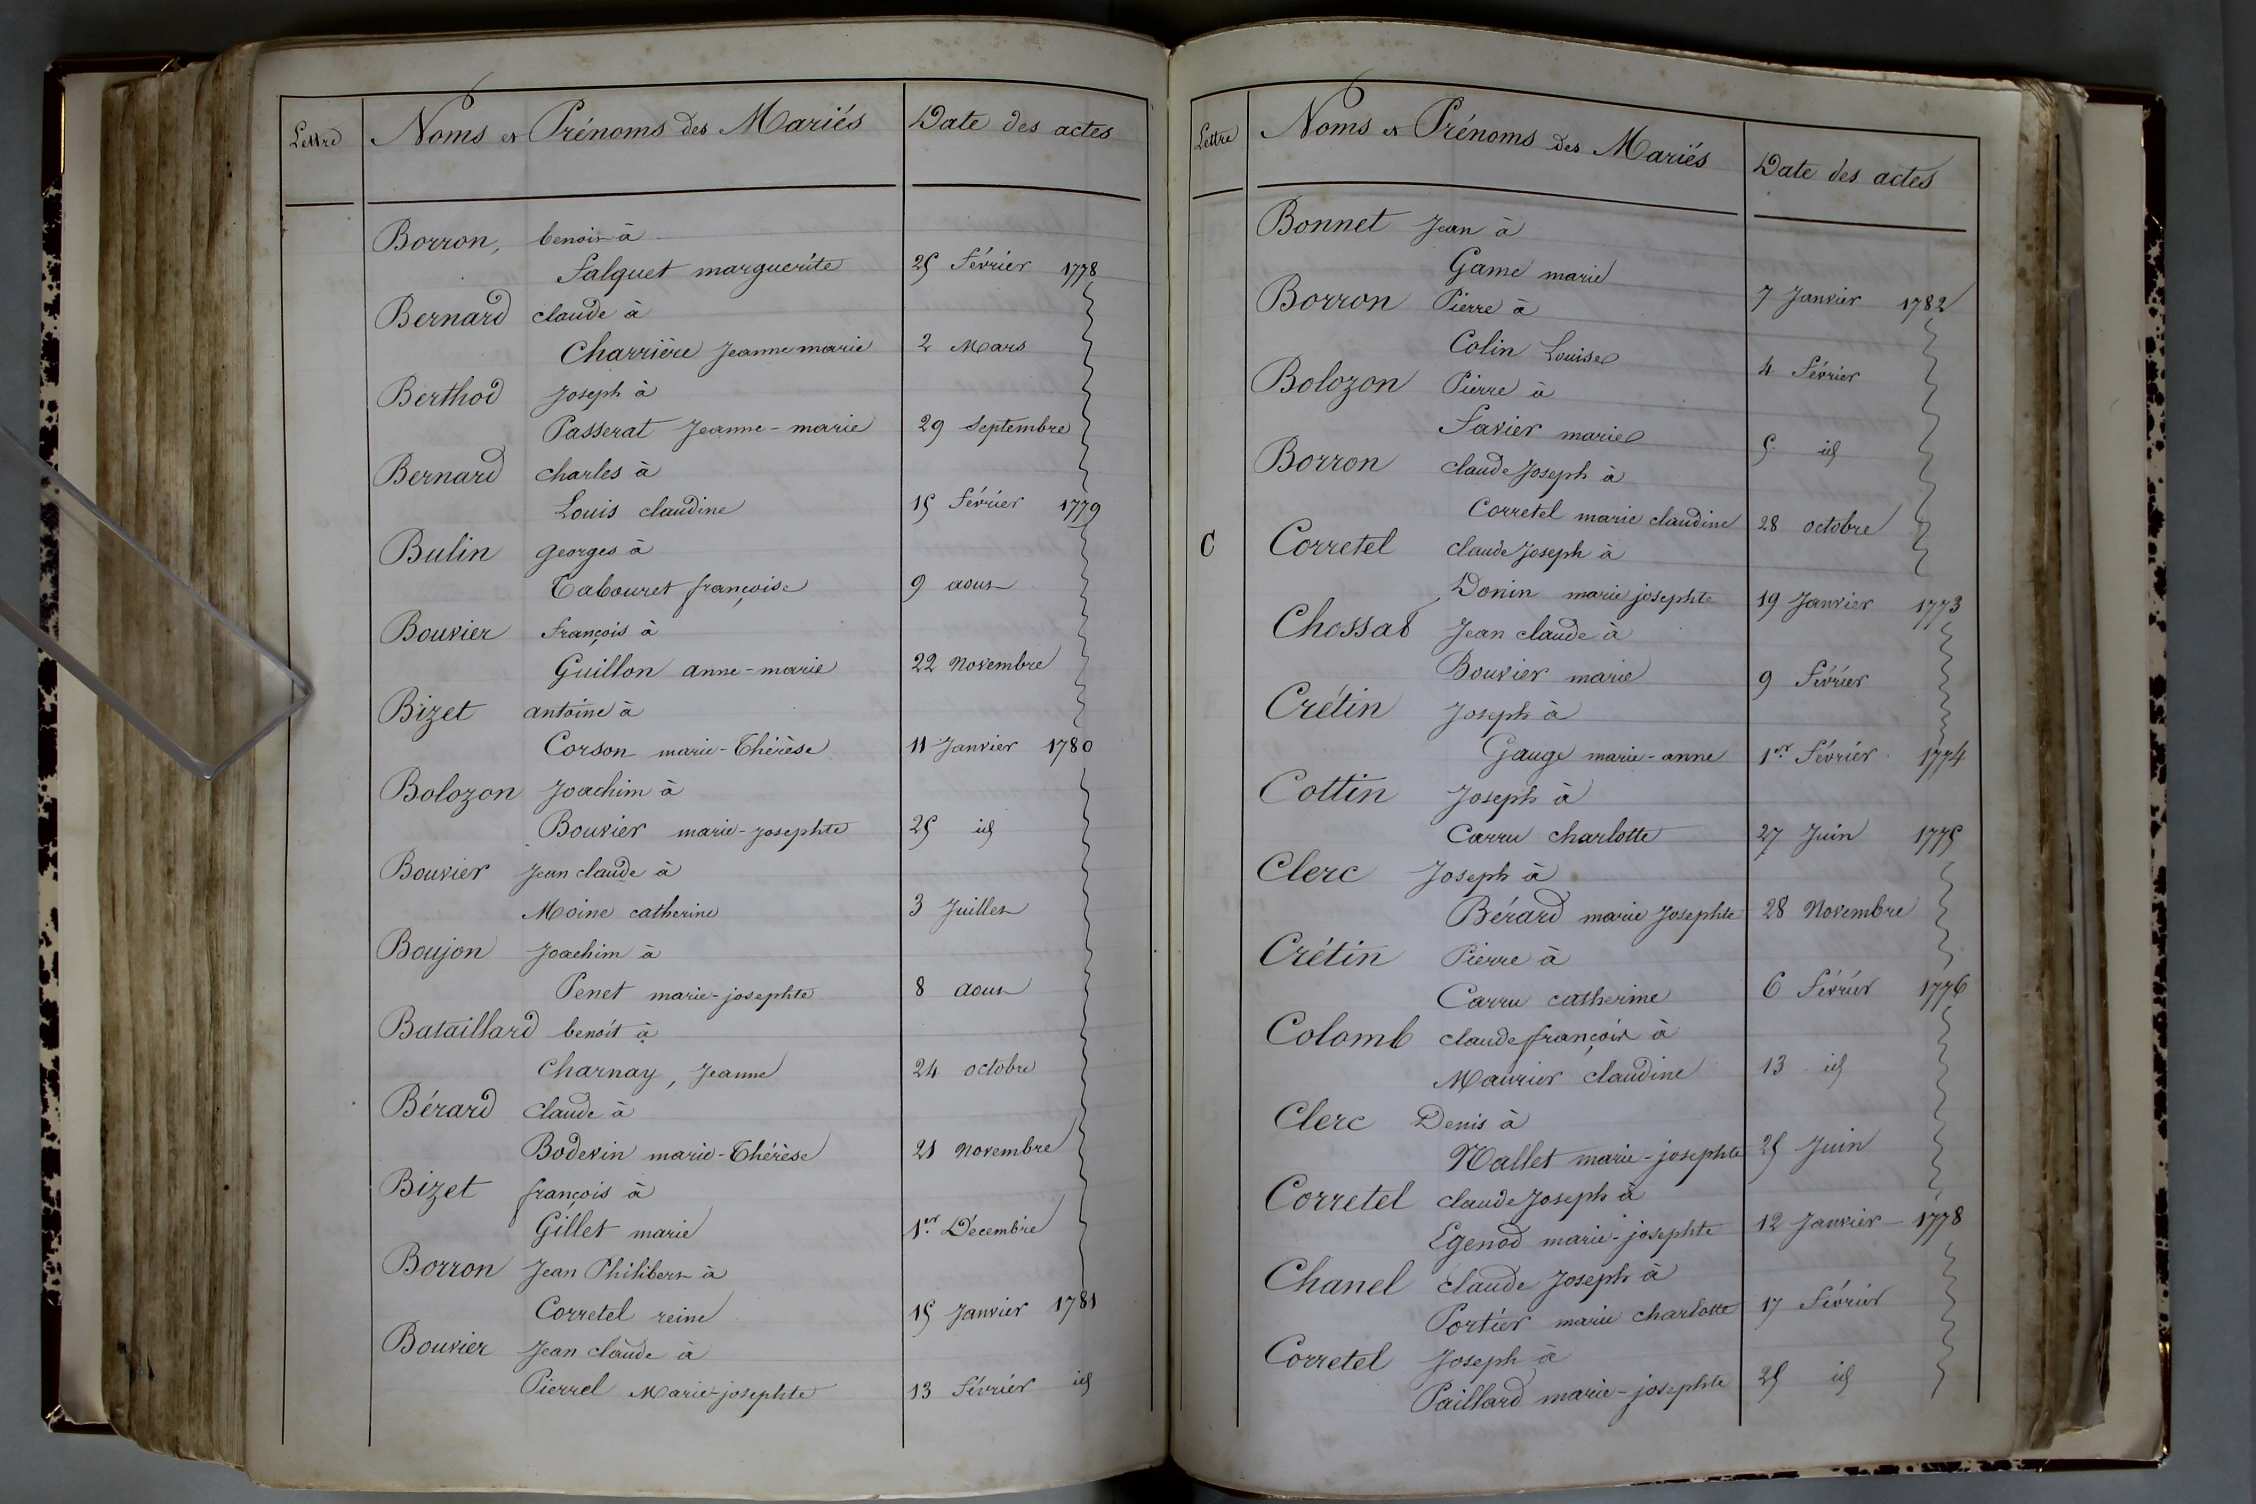 Lettre Noms et Prénoms des Mariés Date des actes
Borron, benoit à
Falquet marguerite 25 février 1778
Bernard claude à
Charrière Jeanne marie 2 Mars
Berthod Joseph à
Passerat Jeanne-marie 29 Septembre
Bernard charles à
Louis claudine 15 février 1779
Bulin georges à
Tabouret françoise 9 aout
Bouvier françois à
Guillon anne-marie 22 Novembre
Bizet antoine à
Corson marie-Thérèse 11 Janvier 1780
Bolozon Joachim à
Bouvier marie-josephte 25 id
Bouvier Jean claude à
Moine catherine 3 Juillet
Boujon Joachim à
Penet marie-josephte 8 aout
Bataillard benoît à
Charnay, Jeanne 24 octobre
Bérard claude à
Bodevin marie-Thérèse 21 Novembre
Bizet françois à
Gillet marie 1er Décembre
Borron Jean Philibert à
Corretel reine 15 Janvier 1781
Bouvier Jean claude à
Pierrel Marie-josephte 13 février id
Lettre Noms et Prénoms des Mariés Date des actes
Bonnet Jean à
Game marie 7 Janvier 1782
Borron Pierre à
Colin Louise 4 février
Bolozon Pierre à
Favier marie 5 id
Borron claude Joseph à
Corretel marie claudine 28 octobre
C Corretel claude Joseph à
Donin marie josephte 19 Janvier 1773
Chossat Jean claude à
Bouvier marie 9 février
Crétin Joseph à
Gauge marie-anne 1er février 1774
Cottin Joseph à
Carru charlotte 27 Juin 1775
Clerc Joseph à
Bérard marie Josephte 28 Novembre
Crétin Pierre à
Carru catherine 6 février 1776
Colomb claude françois à
Maurier claudine 13 id
Clerc Denis à
Mallet marie-josephte 25 Juin
Corretel claude Joseph à
Egenod marie-josephte 12 Janvier - 1778
Chanel claude Joseph à
Portier marie charlotte 17 février
Corretel Joseph à
Paillard marie-josephte 25 id